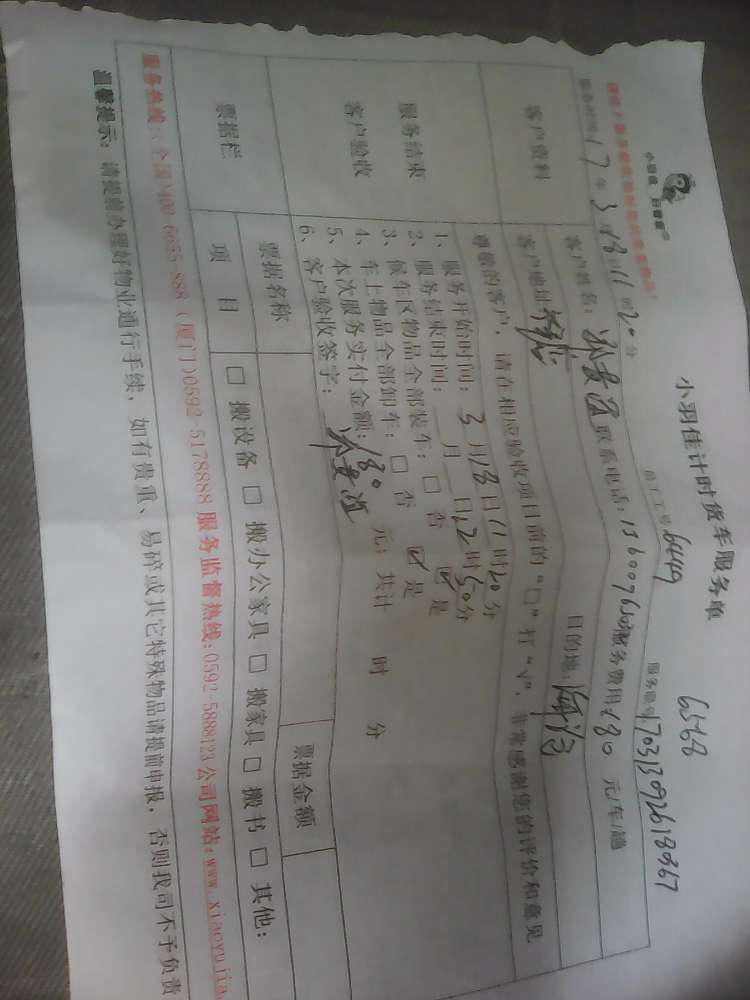 小羽佳计时货车服务单
6568
员工工号 6449
服务编号 1703130926180367
服务时间: 17 年 3 月 18 日 11 时 20 分
客户资料
客户姓名:
联系电话:
服务费用 180 元/车/趟
客户地址:
目的地: 海沧
尊敬的客户,请在相应验收项目前的“□”打“√”,非常感谢您的评价和意见
服务结束
客户验收
1、服务开始时间: 3 月 18 日 11 时 20 分
2、服务结束时间: 月 日 12 时 50 分
3、候车区物品全部装车: □ 否 ☑ 是
4、车上物品全部卸车: □ 否 ☑ 是
5、本次服务实付金额: 180 元; 共计 时 分
6、客户验收签字:
票据栏
票据名称
票据金额
项 目
□ 搬设备 □ 搬办公家具 □ 搬家具 □ 搬书 □ 其他:
服务热线:(全国)400-6655-888 (厦门)0592-5178888 服务监督热线:0592-5888123 公司网站:www.xiaoyujia
温馨提示: 请提前办理好物业通行手续, 如有贵重、易碎或其它特殊物品请提前申报, 否则我司不予负责